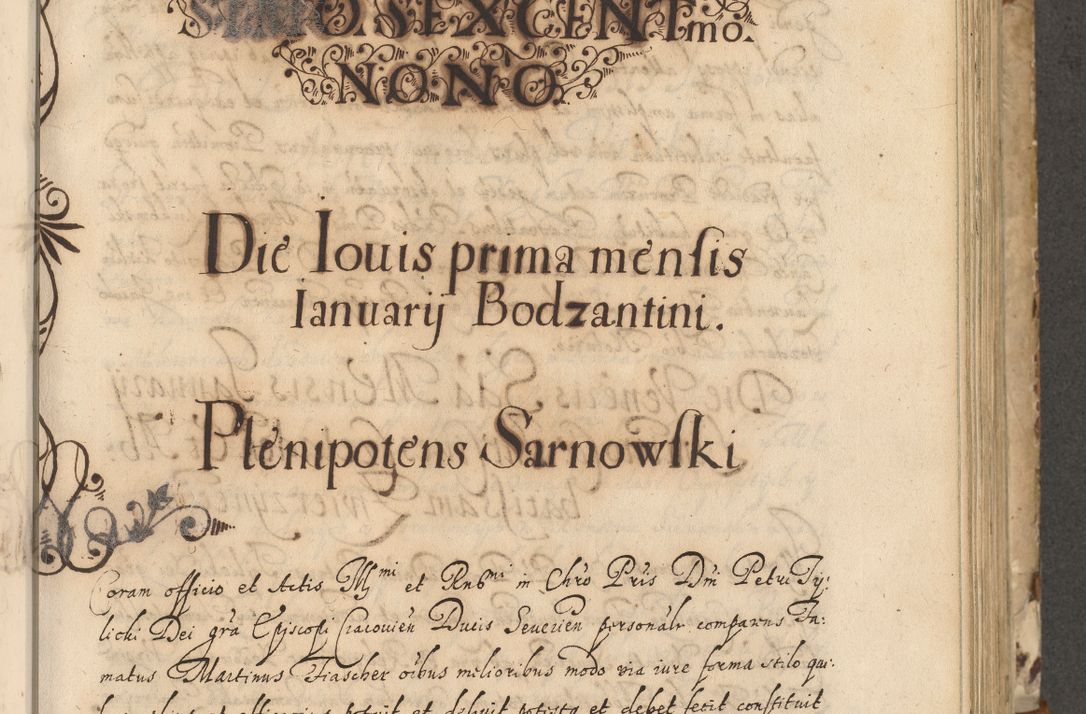 SEXCENTmo.
NONO.
Die Iouis prima mensis
Ianuarij Bodzantini.
Plenipotens Sarnowski
Coram officio et Actis Illmi et Rndmi in Chro Pris Dni Petri Ty:
licki Dei gra Episcopi Cracovien Ducis Severien personalr comparens Fa:
matus Martinus Fiascher oibus melioribus modo via iure forma stilo qui:
potuit et debuit potestq et debet fecit constituit